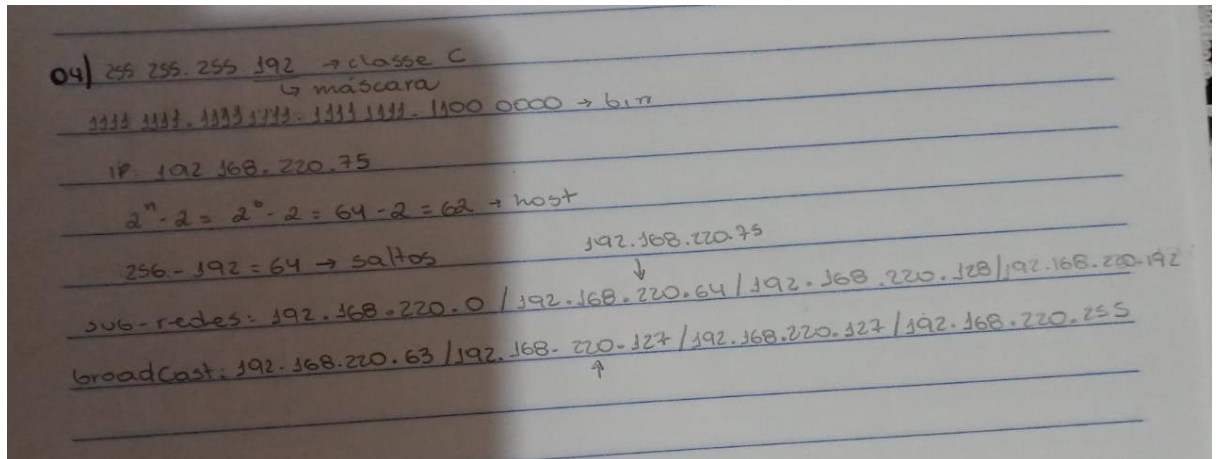 04) 255 255. 255. 192 → classe C
↳ máscara
1111 1111. 1111 1111. 1111 1111. 1100 0000 → bin
IP: 192 168. 220. 75
2ⁿ - 2 = 2⁶ - 2 = 64 - 2 = 62 → host
256 - 192 = 64 → saltos
192.168.220.75
↓
sub-redes: 192.168.220.0 / 192.168.220.64 / 192.168.220.128 / 192.168.220.192
broadcast: 192.168.220.63 / 192.168.220.127 / 192.168.220.127 / 192.168.220.255
↑